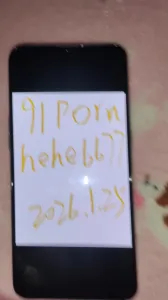 91porn
hehe6677
2026.1.25